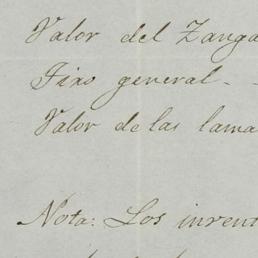 Valor del Zanga
Fixo general - -
Valor de las lama
Nota: Los invent